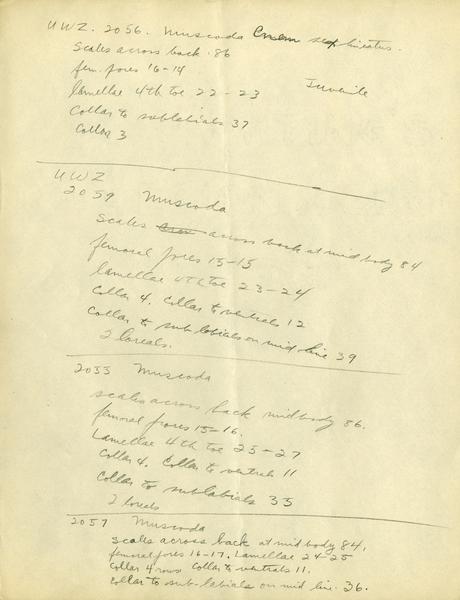 UWZ. 2056. Muscoda Cnem sexlineatus.
Scales across back. 86
fem. pores 16-14
Juvenile
lamellae 4th toe 22-23
Collar to sublabials 37
Collar 3
UWZ
2059 Muscoda
scales across back at mid body 84
femoral pores 15-15
lamellae 4th toe 23-24
Collar 4. Collar to ventrals 12
Collar to sub labials on mid line 39
2 loreals.
2055 Muscoda
scales across back midbody 86.
femoral pores 15-16.
Lamellae 4th toe 25-27
Collar 4. Collar to ventrals 11
Collar to sublabials 35
2 loreals
2057 Muscoda
scales across back at midbody 84,
femoral pores 16-17. Lamellae 24-25
Collar 4 rows Collar to ventrals 11.
Collar to sub-labials on mid line. 36.